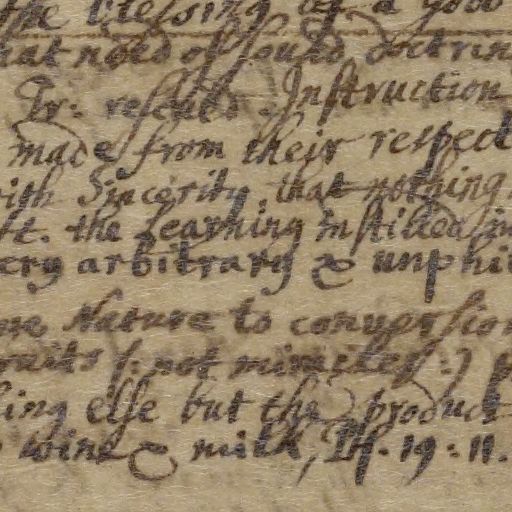 the blessing of a good
that need of sound doctrin
Tr: rescued. Instruction
made from their respect
ith Sincerity, that nothing
ft. the learning instilled in
ery arbitrary & unphi
Nature to conversion
ruits (: not miracles :)
hing else but the product
wine & milk, Ps. 19. 11.